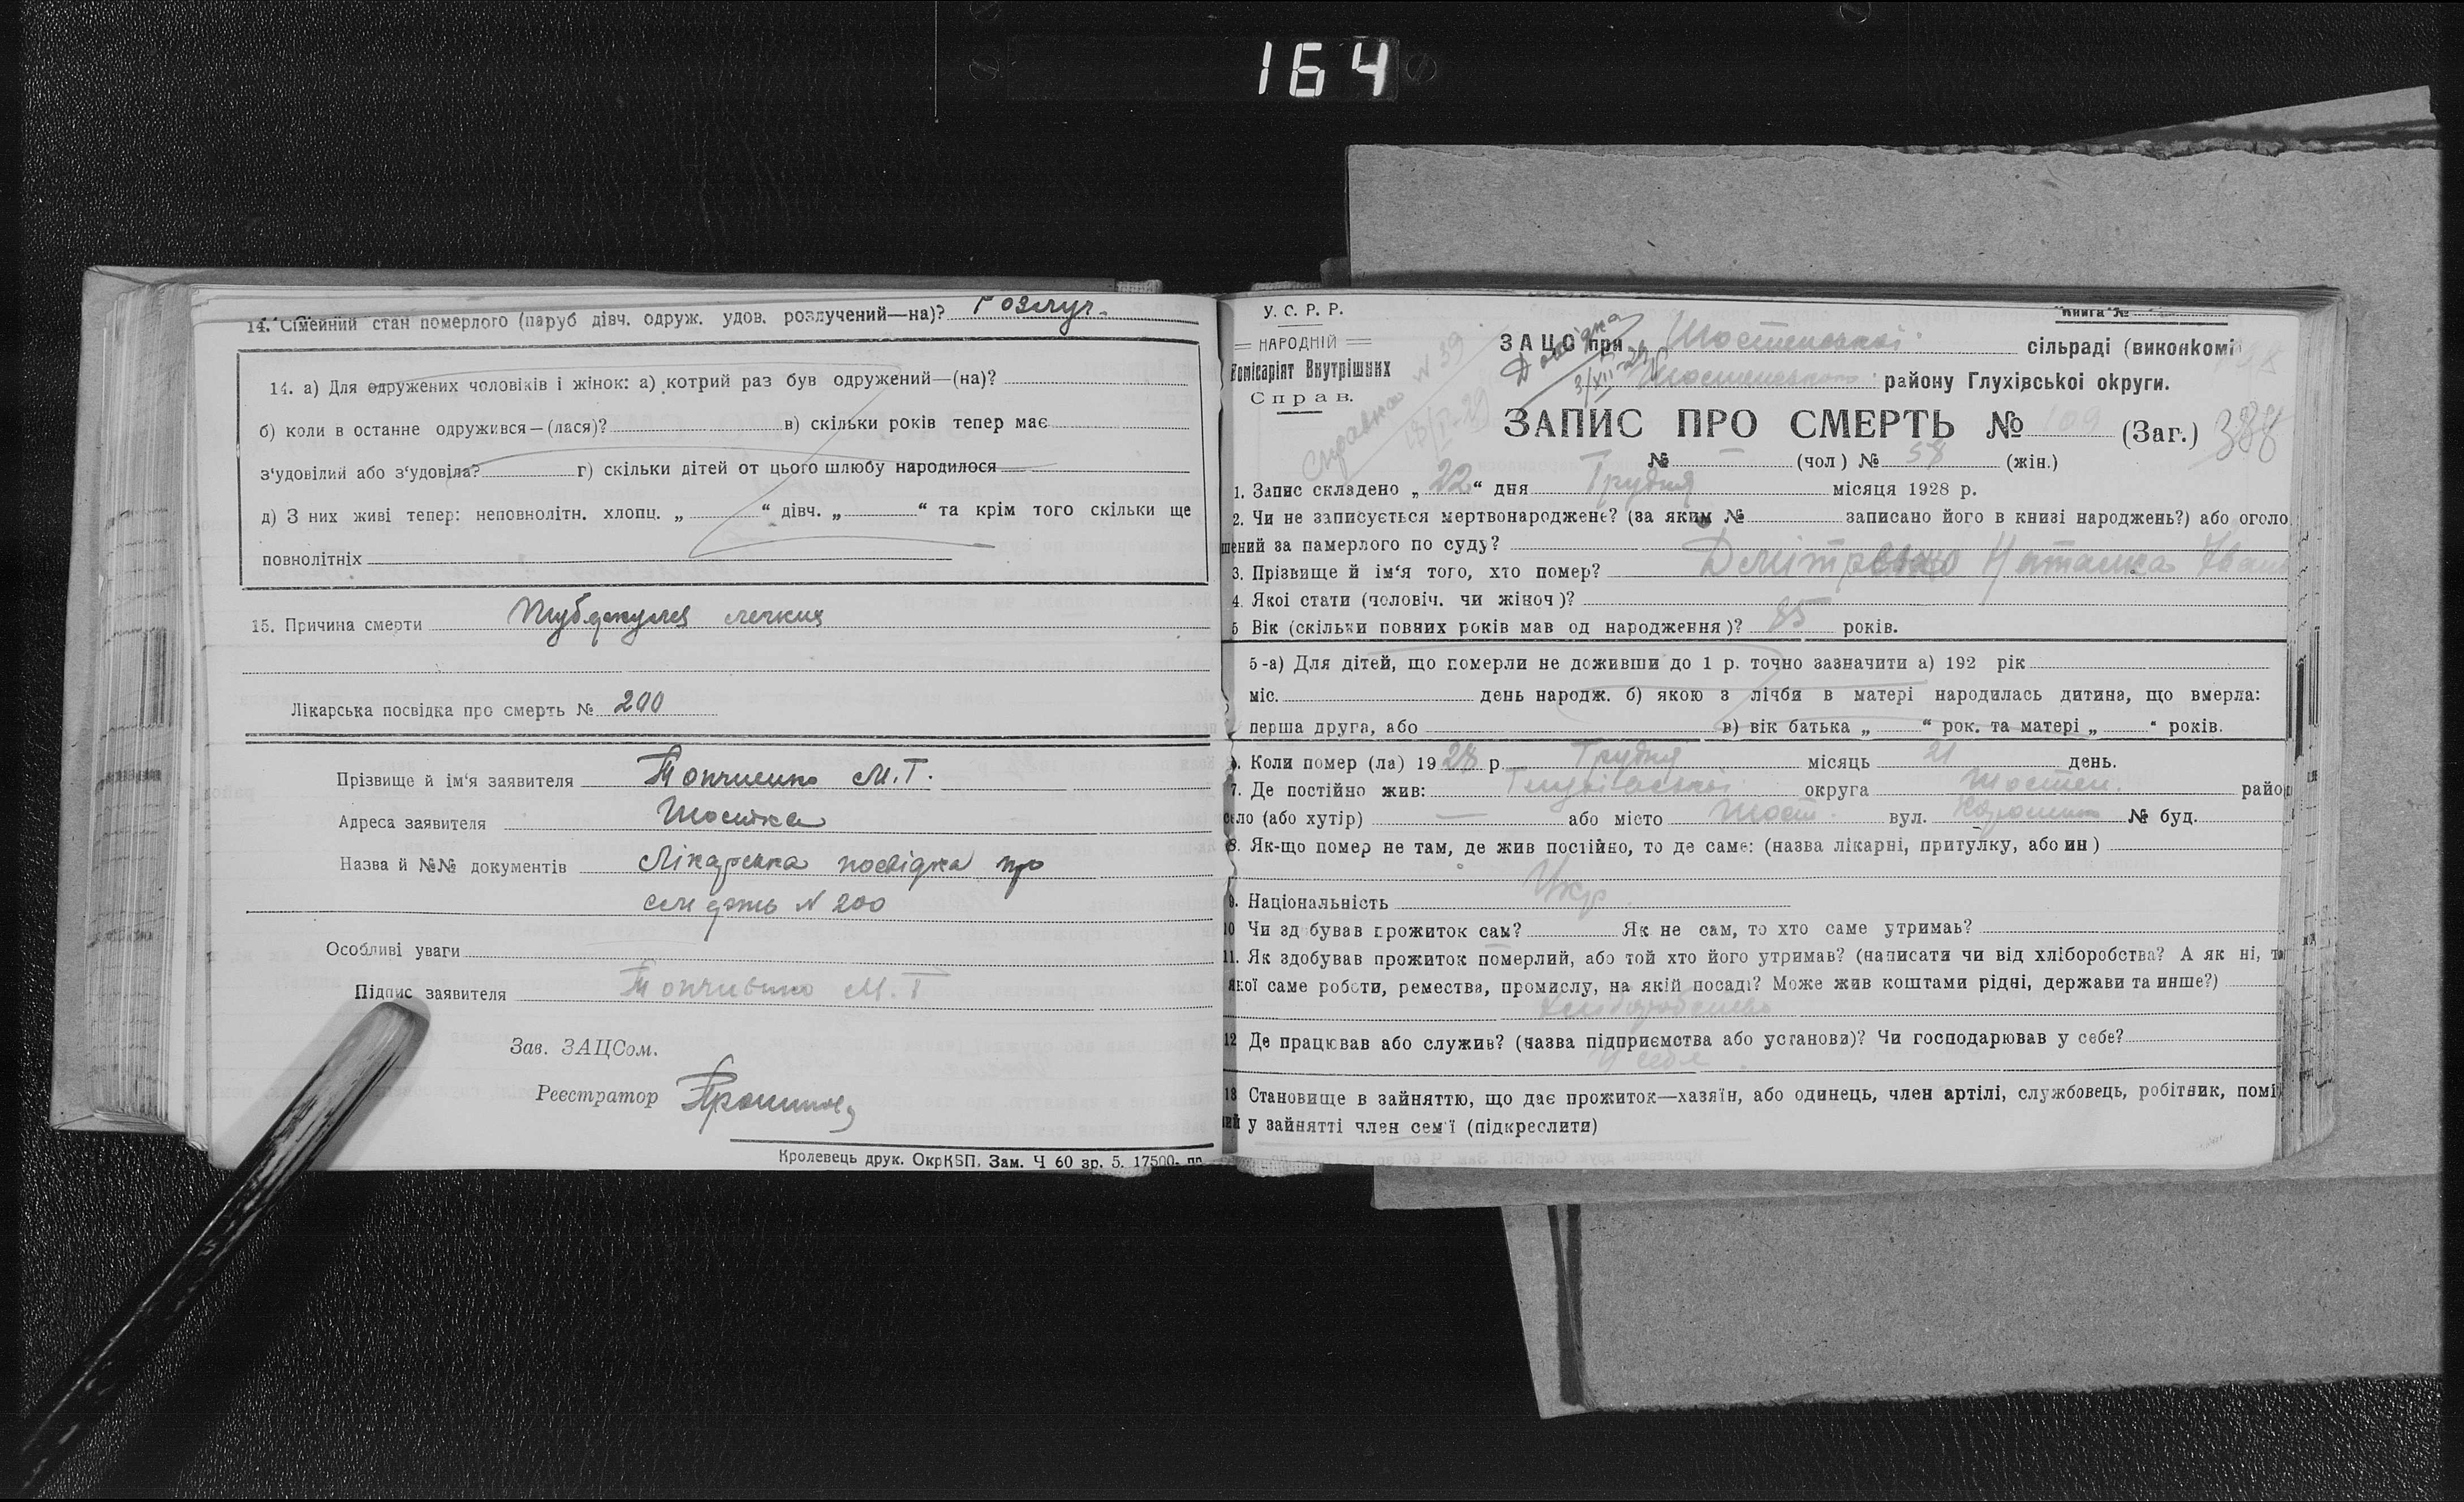 164
14. Сімейний стан померлого (паруб дівч. одруж. удов. розлучений—на)? Розлуч.
14. а) Для одружених чоловіків і жінок: а) котрий раз був одружений—(на)?
б) коли в останне одружився—(лася)? в) скільки років тепер має
з'удовілий або з'удовіла? г) скільки дітей от цього шлюбу народилося
д) З них живі тепер: неповнолітн. хлопц. „ “ дівч. „ “ та крім того скільки ще
повнолітніх
15. Причина смерти Туберкулез легких
Лікарська посвідка про смерть № 200
Прізвище й ім'я заявителя М. Г.
Адреса заявителя Шостка
Назва й №№ документів Лікарська посвідка про
смерть № 200
Особливі уваги
Підпис заявителя М. Г
Зав. ЗАЦСом.
Реестратор
Кролевець друк. ОкрКБП. Зам. Ч 60 зр. 5. 17500.
У. С. Р. Р.
НАРОДНІЙ
Комісаріят Внутрішних
Справ.
Справка № 39
Довідка
Книга №
ЗАЦС при Шостенської сільраді (виконкомі
Шостенського району Глухівської округи.
ЗАПИС ПРО СМЕРТЬ № 109 (Заг.) 388
№ (чол) № 58 (жін.)
1. Запис складено „ 22 “ дня Грудня місяця 1928 р.
2. Чи не записується мертвонароджене? (за яким № записано його в книзі народжень?) або оголо
шений за памерлого по суду?
3. Прізвище й ім'я того, хто помер? Наталка Іван
4. Якої стати (чоловіч. чи жіноч)?
5 Вік (скільки повних років мав од народження)? 85 років.
5-а) Для дітей, що померли не доживши до 1 р. точно зазначити а) 192 рік
міс. день народж. б) якою з лічби в матері народилась дитина, що вмерла:
перша друга, або в) вік батька „ “ рок. та матері „ “ років.
6. Коли помер (ла) 1928 р. Грудня місяць 21 день.
7. Де постійно жив: Глухівської округа Шостен. район
село (або хутір) — або місто Шост. вул. № буд.
8. Як-що помер не там, де жив постійно, то де саме: (назва лікарні, притулку, або ин)
9. Національність Укр.
10 Чи здобував прожиток сам? Як не сам, то хто саме утримав?
11. Як здобував прожиток померлий, або той хто його утримав? (написати чи від хліборобства? А як ні, то
якої саме роботи, ремества, промислу, на якій посаді? Може жив коштами рідні, держави та инше?)
Хліборобство
12 Де працював або служив? (назва підприємства або установи)? Чи господарював у себе?
У себе
13 Становище в зайняттю, що дає прожиток—хазяїн, або одинець, член артілі, службовець, робітник, помі
ний у зайнятті член сем'ї (підкреслити)